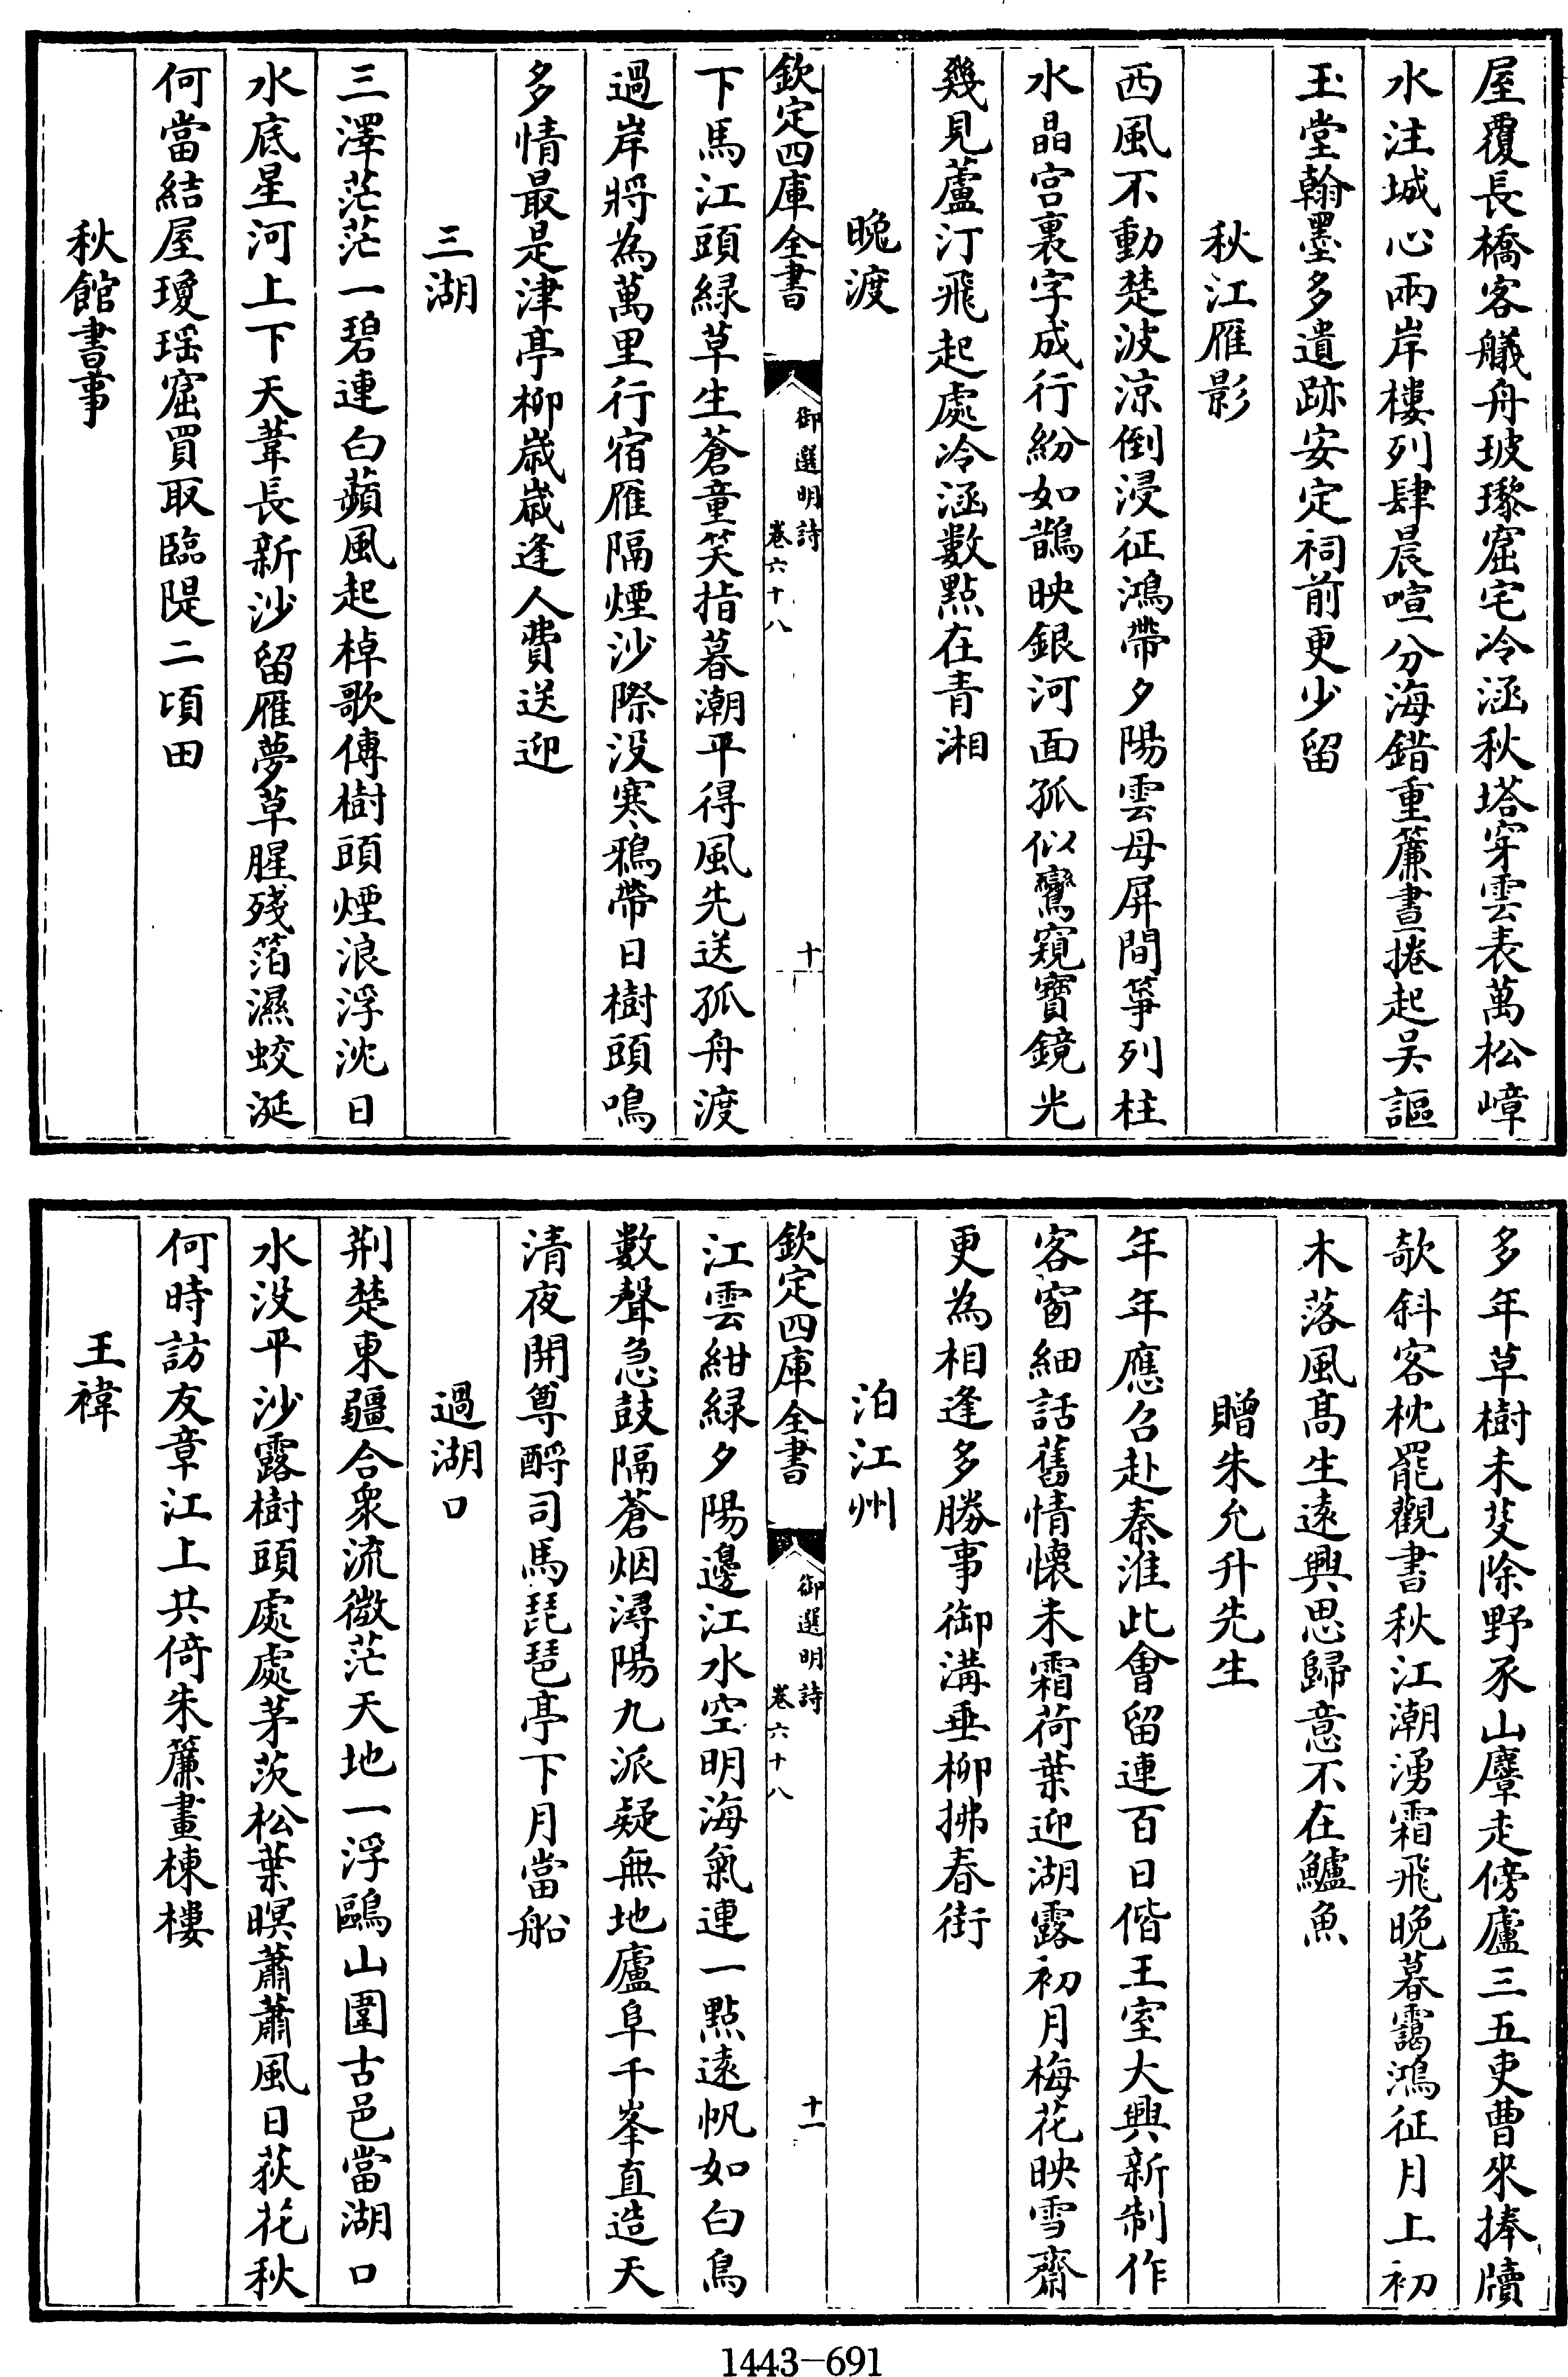 屋覆長橋客艤舟玻瓈窟宅冷涵秋塔穿雲表萬松嶂
水注城心兩岸樓列肆晨喧分海錯重簾晝捲起吴謳
玉堂翰墨多遺跡安定祠前更少留
秋江雁影
西風不動楚波涼倒浸征鴻帶夕陽雲母屏間箏列柱
水晶宫裏字成行紛如鵲映銀河面孤似鸞窺寶鏡光
幾見蘆汀飛起處冷涵數點在青湘
晚渡
欽定四庫全書
御選明詩
卷六十八
十
下馬江頭緑草生蒼童笑指暮潮平得風先送孤舟渡
過岸將為萬里行宿雁隔煙沙際没寒鴉帶日樹頭鳴
多情最是津亭柳歲歲逢人費送迎
三湖
三澤茫茫一碧連白蘋風起棹歌傳樹頭煙浪浮沈日
水底星河上下天葦長新沙留雁夢草腥殘箔濕蛟涎
何當結屋瓊瑶窟買取臨隄二頃田
秋館書事
多年草樹未芟除野豕山麞走傍廬三五吏曹來捧牘
欹斜客枕罷觀書秋江潮湧霜飛晚暮靄鴻征月上初
木落風髙生遠興思歸意不在鱸魚
贈朱允升先生
年年應召赴秦淮此會留連百日偕王室大興新制作
客窗細話舊情懷未霜荷葉迎湖露初月梅花映雪齋
更為相逢多勝事御溝垂柳拂春街
泊江州
欽定四庫全書
御選明詩
卷六十八
十一
江雲紺緑夕陽邊江水空明海氣連一點遠帆如白鳥
數聲急鼓隔蒼烟潯陽九派疑無地廬阜千峯直造天
清夜開尊酹司馬琵琶亭下月當船
過湖口
荆楚東疆合衆流微茫天地一浮鷗山圍古邑當湖口
水没平沙露樹頭處處茅茨松葉暝蕭蕭風日荻花秋
何時訪友章江上共倚朱簾畫棟樓
王禕
1443-691